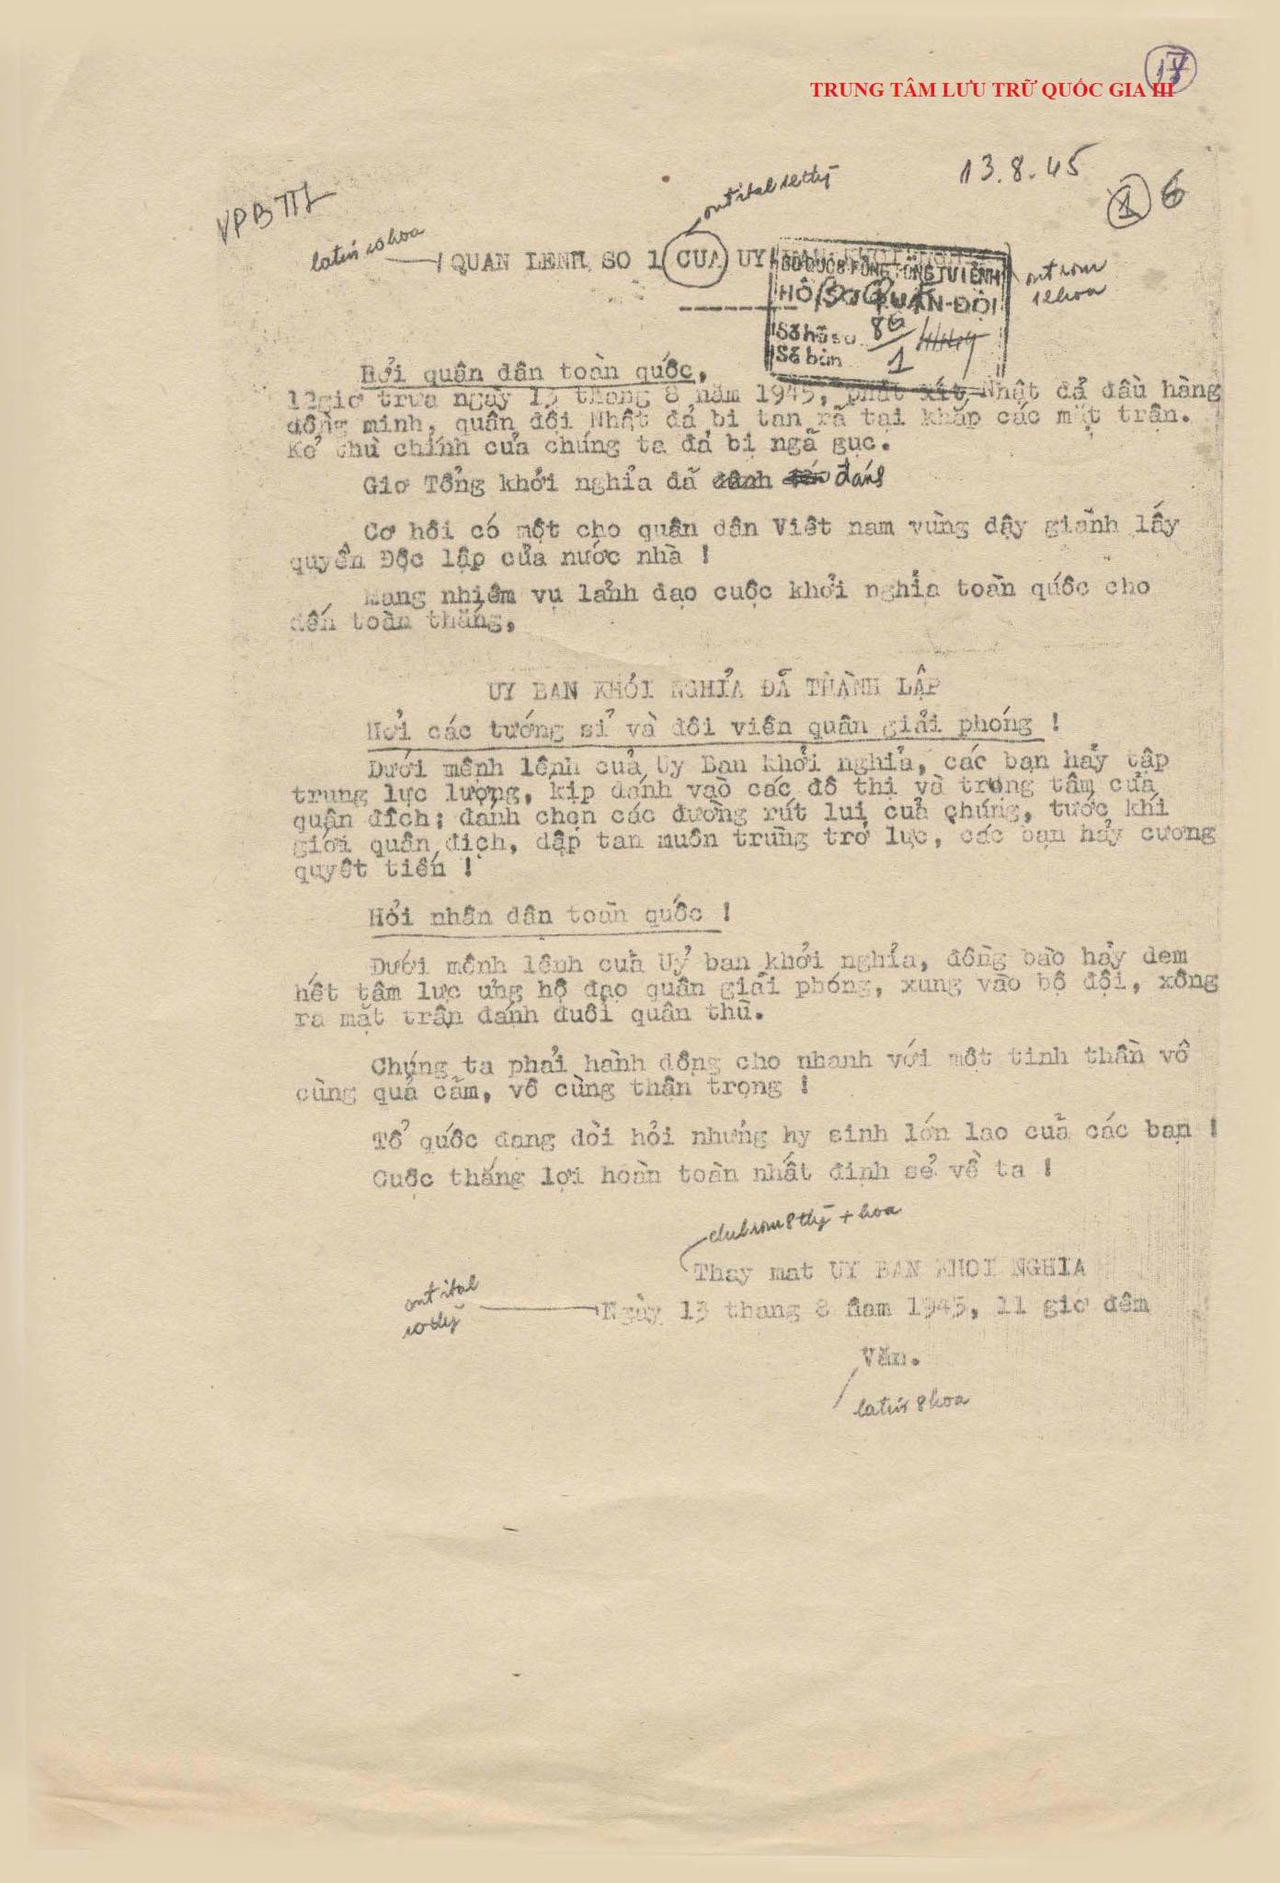 17
TRUNG TÂM LƯU TRỮ QUỐC GIA III
13.8.45
6
VPBTTL
QUAN LENH SO 1 CUA UY
BỘ QUỐC PHÒNG TỔNG TƯ LỆNH
HỒ SƠ QUÂN-ĐỘI
Số hồ sơ 86
Số bản 1
Hởi quân dân toàn quốc,
12giơ trưa ngày 13 tháng 8 năm 1945, phát xít Nhật đả đầu hàng
đồng minh, quân đội Nhật đả bi tan rã tại khắp các mặt trận.
Kẻ thù chính cua chúng ta đả bị ngã gục.
Giơ Tổng khởi nghỉa đã đánh
Cơ hôi có một cho quân dân Viêt nam vùng dậy giành lấy
quyền Độc lập của nước nhà !
Mang nhiệm vụ lảnh đạo cuộc khởi nghỉa toàn quốc cho
đến toàn thắng,
UY BAN KHỎI NGHỈA ĐÃ THÀNH LẬP
Hởi các tướng sỉ và đôi viên quân giải phóng !
Dưới mênh lênh cuả Uy Ban khởi nghỉa, các bạn hảy tập
trung lực lượng, kịp đánh vaò các đô thi và trung tâm của
quận đich; đánh chẹn các đường rút lui cuả chúng, tước khí
giới quân địch, dập tan muôn trùng trở lực, các bạn hảy cương
quyết tiến !
Hỏi nhân dân toàn quốc !
Dưới mênh lênh cuả Uỷ ban khởi nghỉa, đồng bào hảy dem
hết tâm lưc ưng hộ đạo quân giải phóng, xung vào bộ đội, xông
ra mặt trận đánh đuôi quân thù.
Chúng ta phải hành động cho nhanh với một tinh thần vô
cùng quả cảm, vô cùng thận trọng !
Tổ quốc đang đòi hỏi những hy sinh lớn lao cuả các bạn !
Cuộc thắng lợi hoàn toàn nhất định sẻ về ta !
Thay mat UY BAN KHOI NGHIA
Ngày 13 thang 8 nam 1945, 11 giơ đêm
Văn.